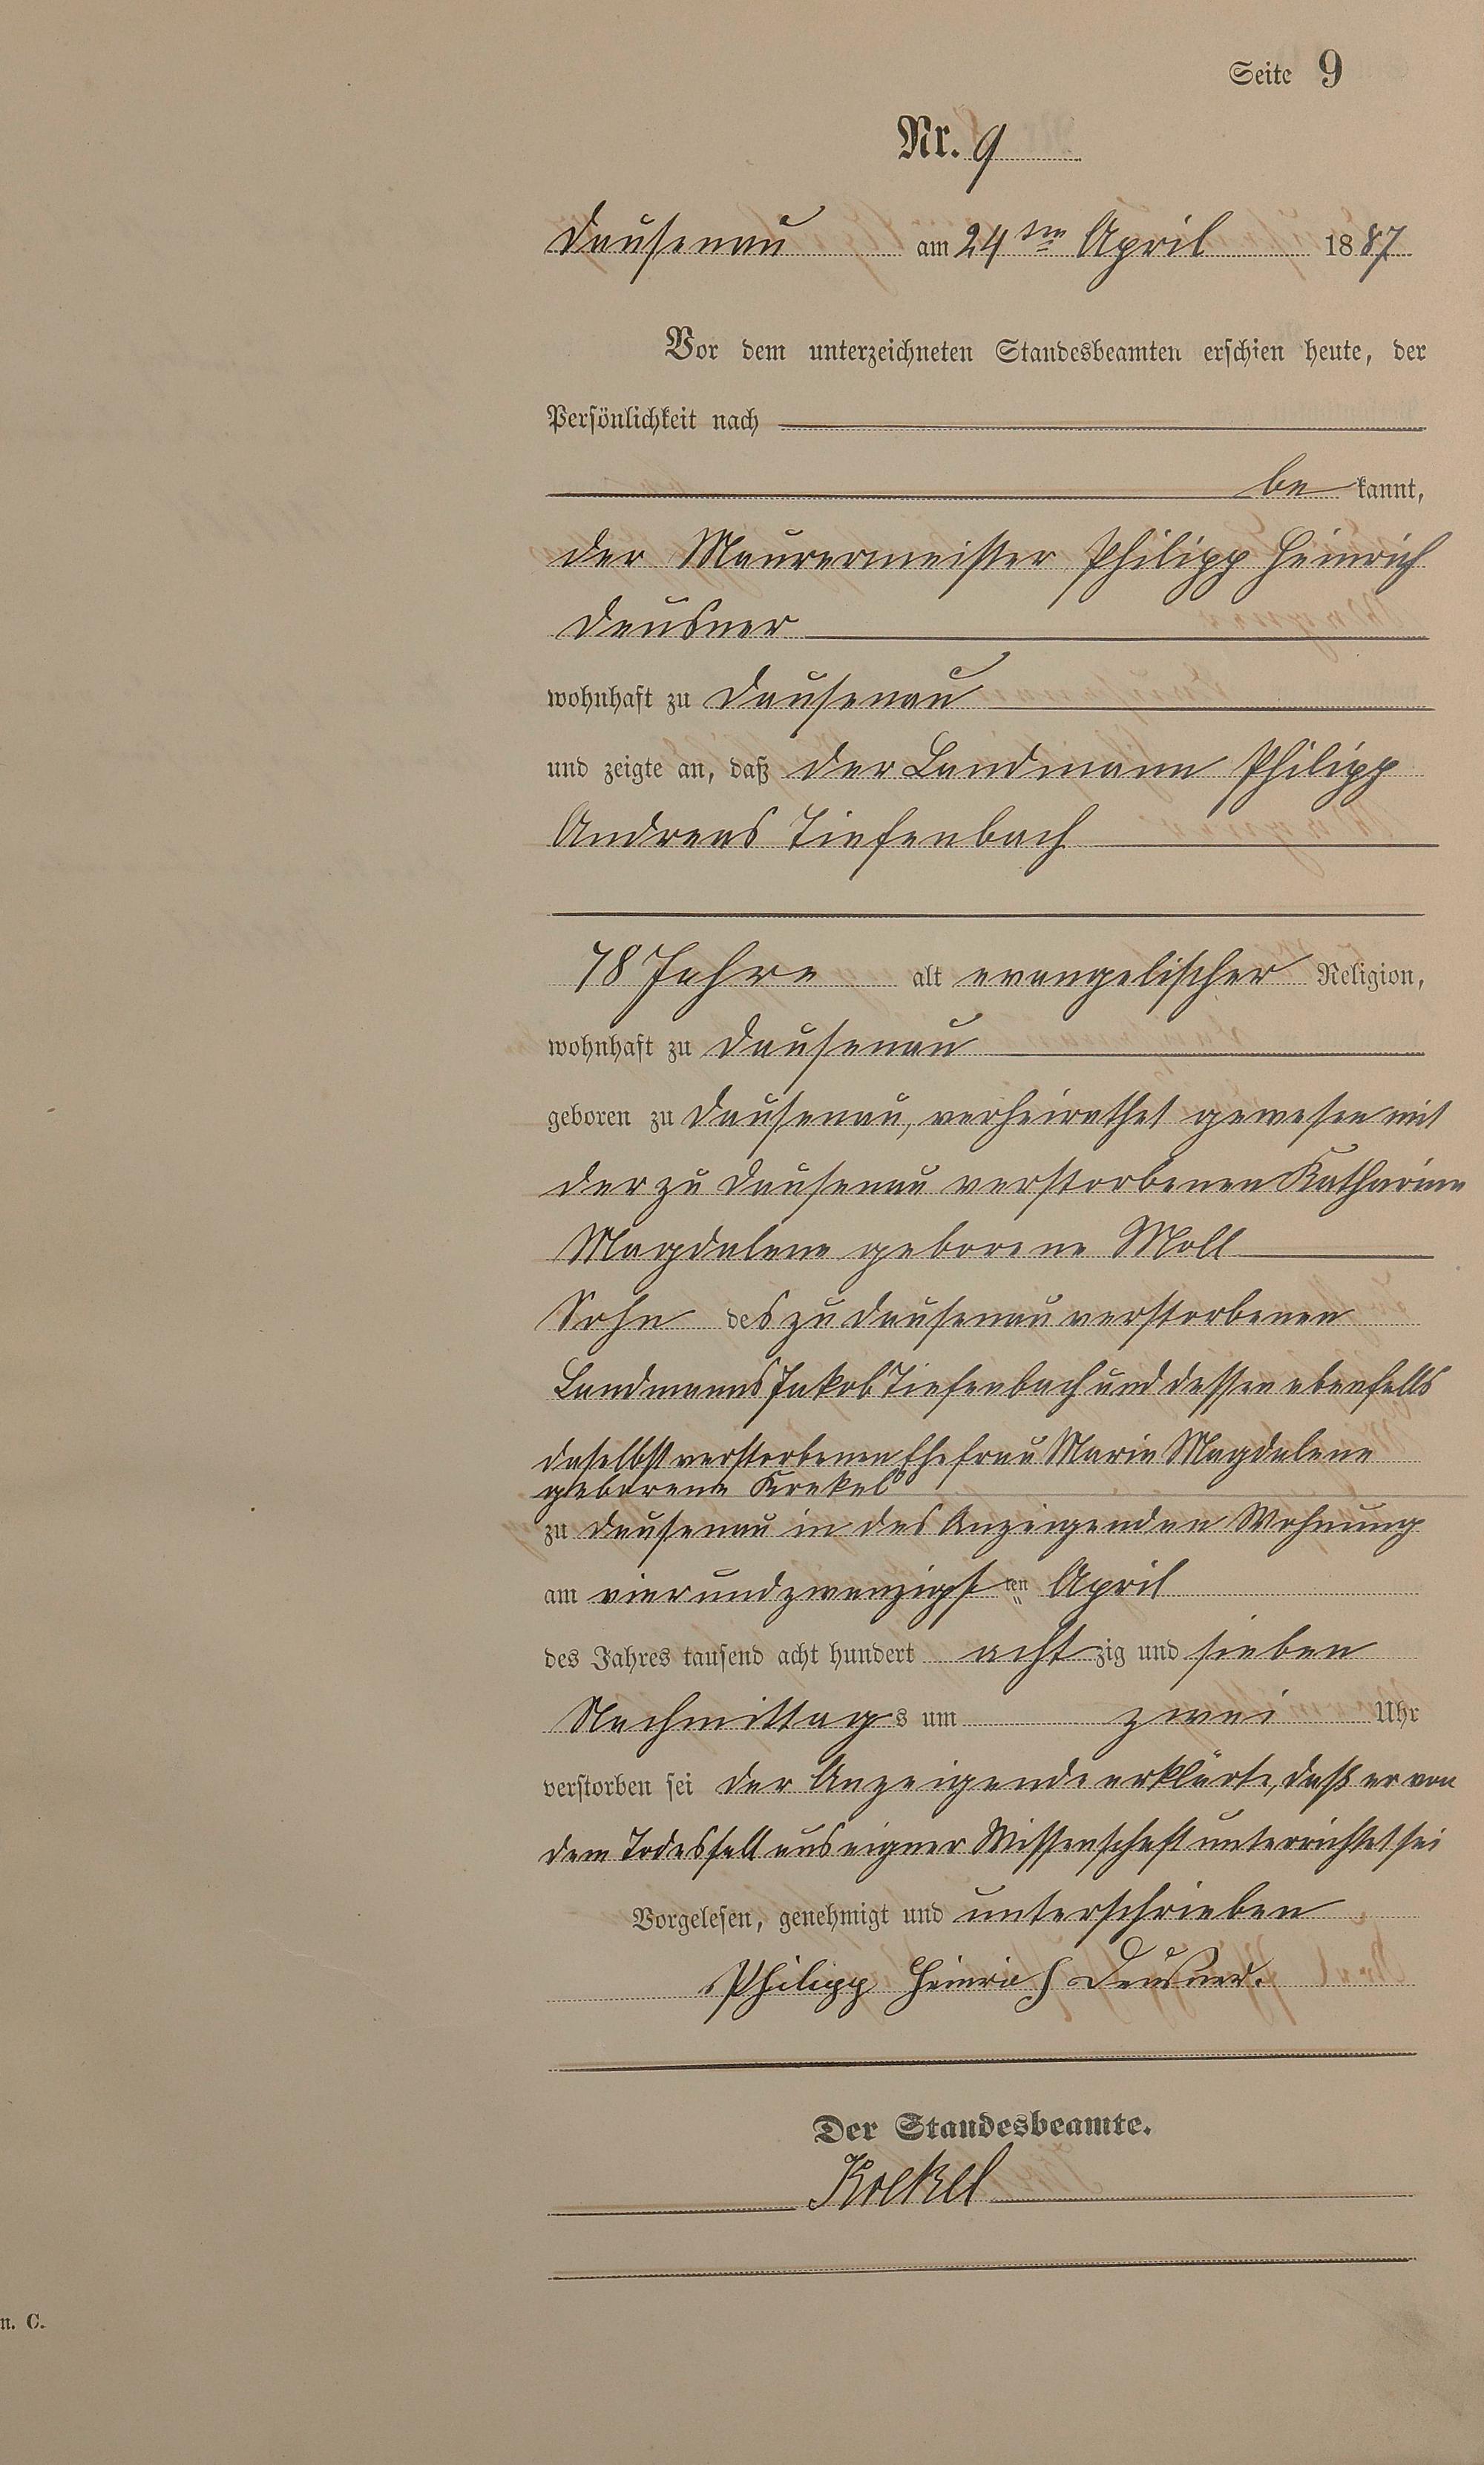 Seite 9
Nr. 9
Dausenau am 24ten April 1887
Vor dem unterzeichneten Standesbeamten erschien heute, der
Persönlichkeit nach
be kannt,
der Maurermeister Philipp Heinrich
Deusner
wohnhaft zu Dausenau
und zeigte an, daß der Landmann Philipp
Andreas Tiefenbach
78 Jahre alt evangelischer Religion,
wohnhaft zu Dausenau
geboren zu Dausenau, verheirathet gewesen mit
der zu Dausenau verstorbenen Katharina
Magdalene geborene Moll
Sohn des zu Dausenau verstorbenen
Landmanns Jakob Tiefenbach und dessen ebenfalls
daselbst verstorbenen Ehefrau Maria Magdalene
geborene Krekel
zu Dausenau in des Anzeigenden Wohnung
am vierundzwanzigsten April
des Jahres tausend acht hundert acht zig und sieben
Nachmittags um zwei Uhr
verstorben sei der Anzeigende erklärte, daß er von
dem Todesfall aus eigner Wissenschaft unterrichtet sei
Vorgelesen, genehmigt und unterschrieben
Philipp Heinrich Deusner.
Der Standesbeamte.
Krekel
n. C.